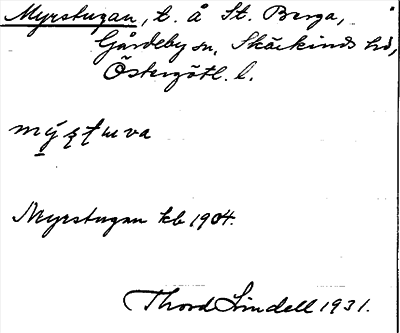 Myrstugan, t. å St. Berga,
Gårdeby sn, Skärkinds hd,
Östergötl. l.
mýstuva
Myrstugan kb 1904.
Thord Lindell 1931.